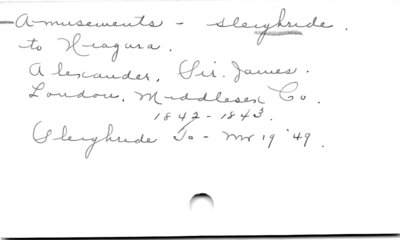 Amusements - sleighride.
to Niagara.
Alexander, Sir. James.
London, Middlesex Co.
1842-1843.
Sleighride to - Mr 19 '49.